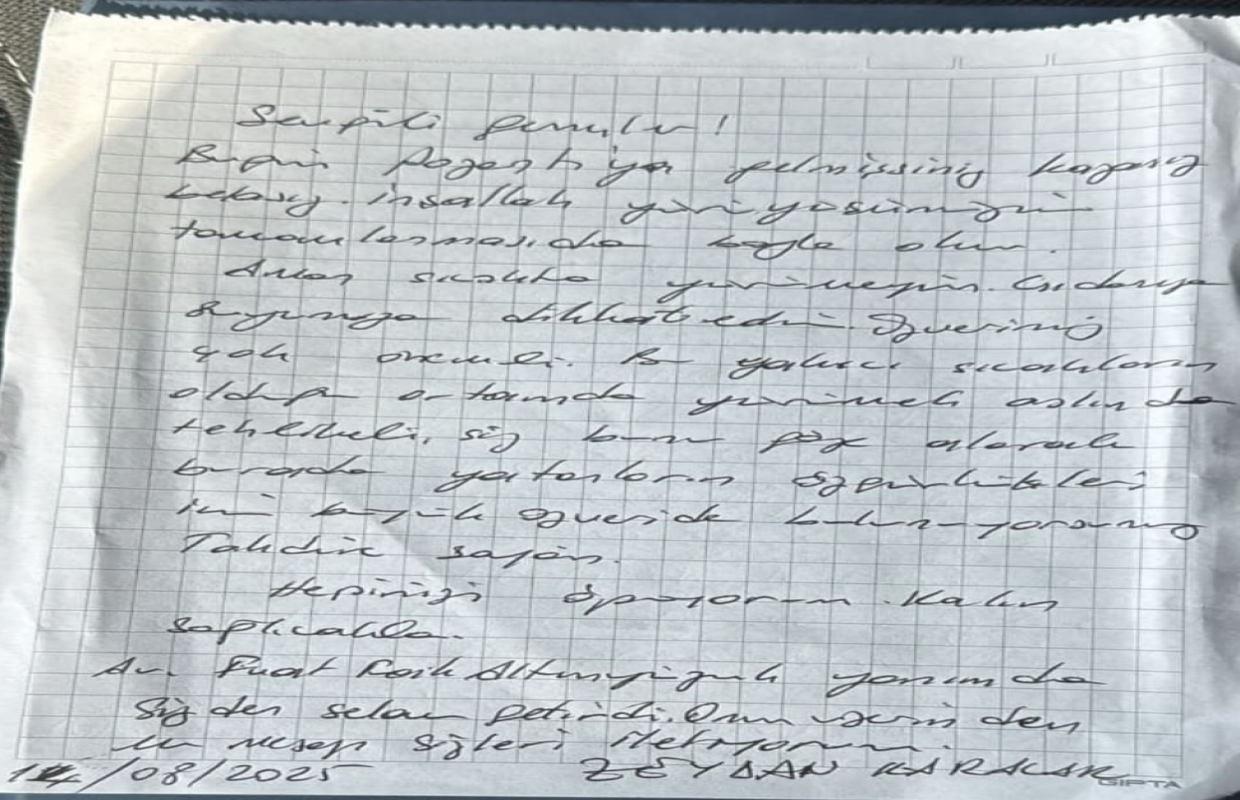 Sevgili gençler!
Bugün Pozantı'ya gelmişsiniz kazasız
belasız. inşallah yürüyüşünüzün
tamamlanması da böyle olur.
Aman sıcakta yürümeyin. Gıdanıza
uykunuza dikkat edin. Özveriniz
çok önemli. Bu yakıcı sıcakların
olduğu ortamda yürümek aslında
tehlikeli, siz bunu göze alarak
burada yatanların özgürlükleri
için büyük özveride bulunuyorsunuz
Takdire şayan.
Hepinizi öpüyorum. Kalın
sağlıcakla.
Av. Fuat yanımda
Sizden selam getirdi. Onun üzerinden
bu mesajı sizlere iletiyorum.
14/08/2025 ZEYDAN KARALAR
GIPTA